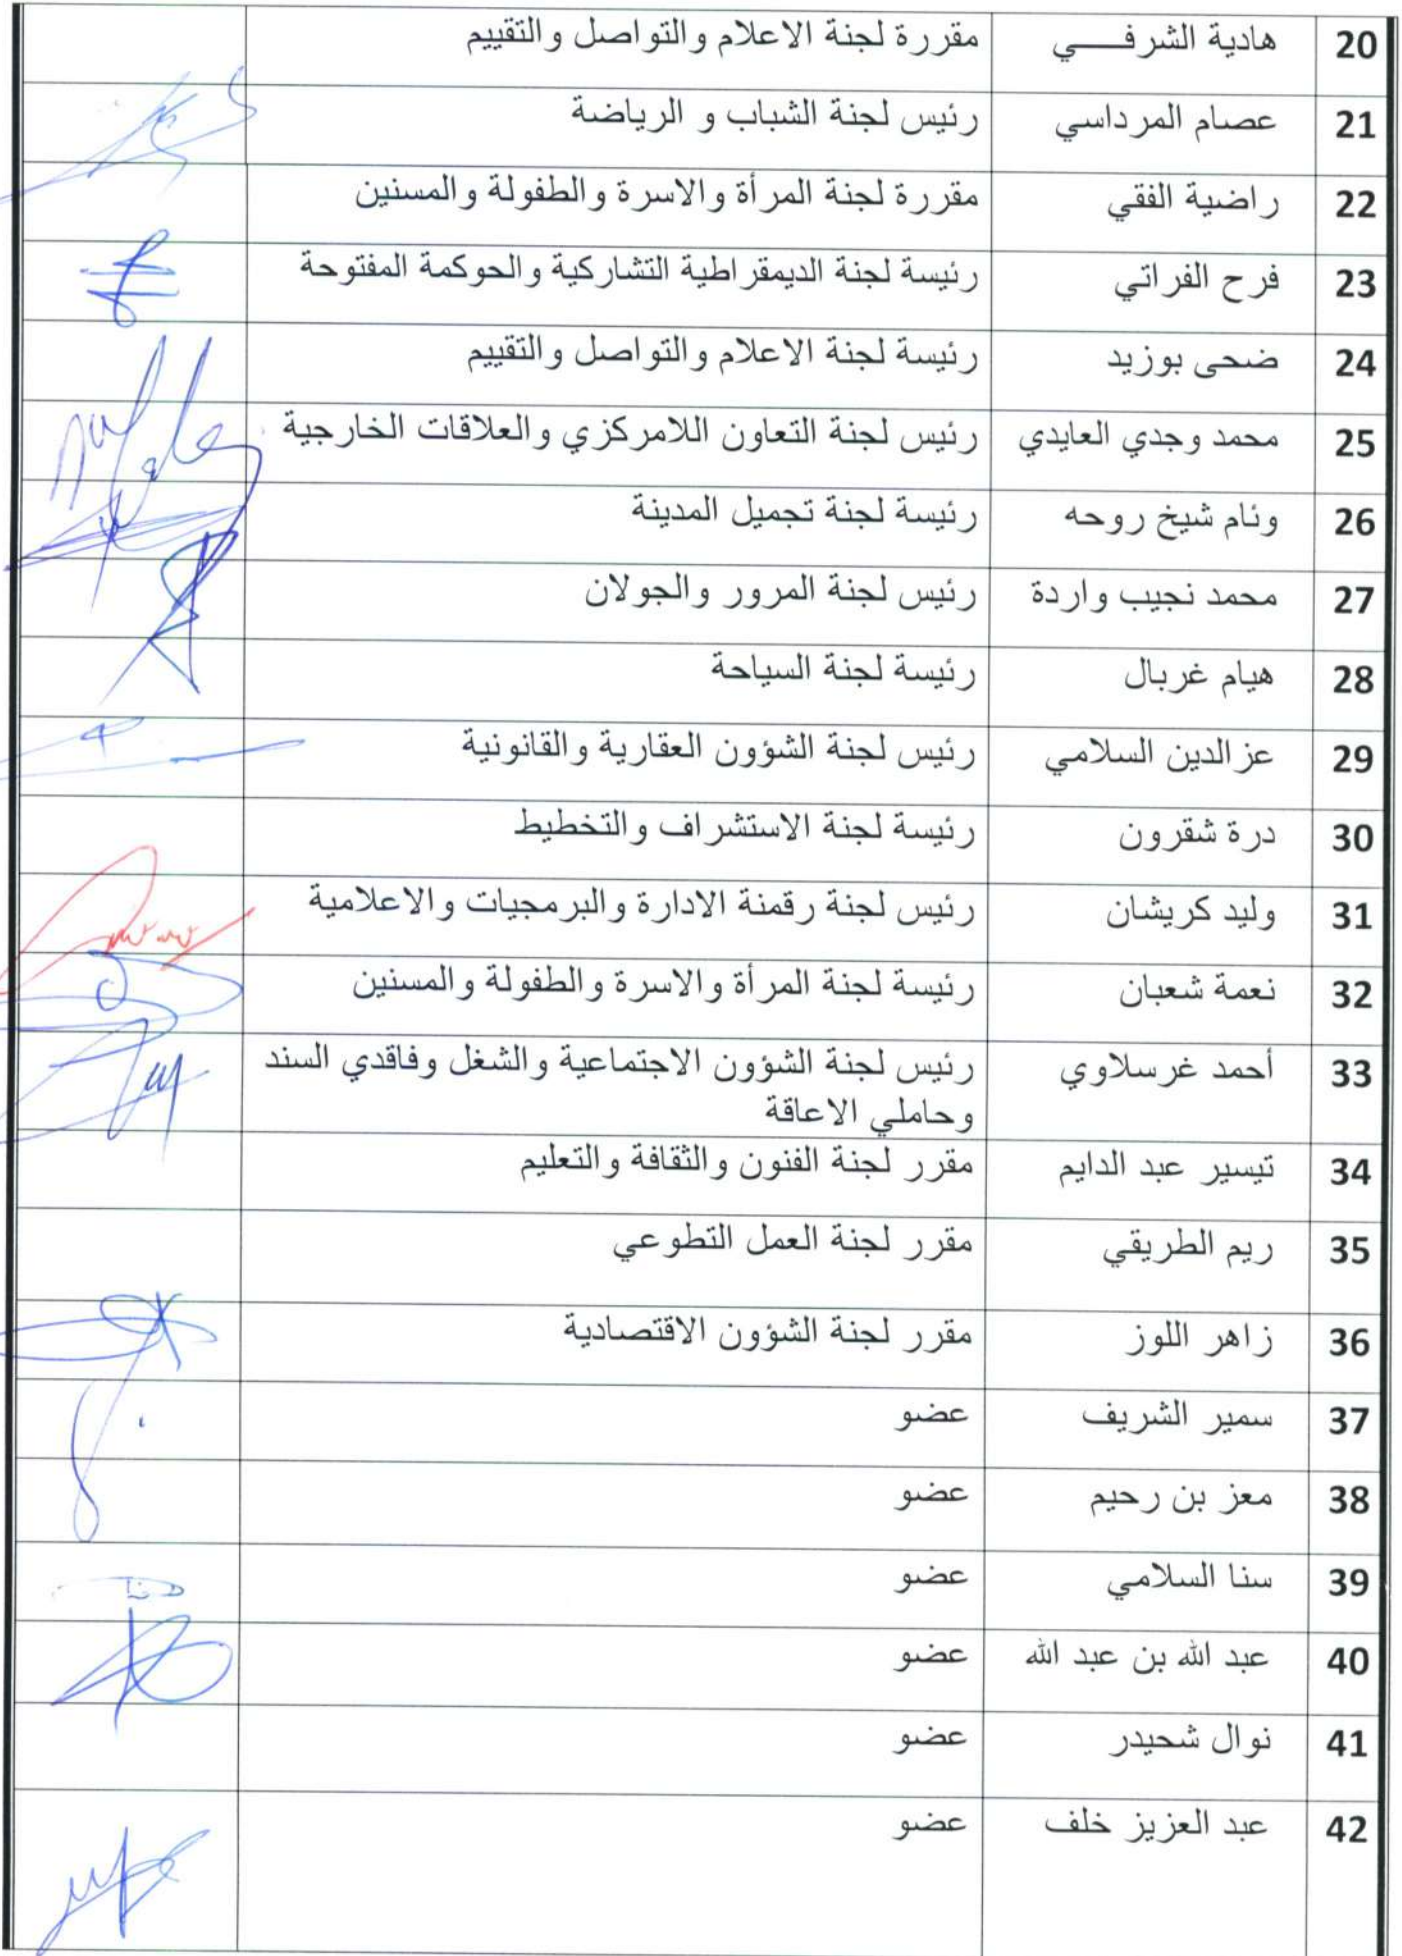 20 هادية الشرفــــي مقررة لجنة الاعلام والتواصل والتقييم
21 عصام المرداسي رئيس لجنة الشباب و الرياضة
22 راضية الفقي مقررة لجنة المرأة والاسرة والطفولة والمسنين
23 فرح الفراتي رئيسة لجنة الديمقراطية التشاركية والحوكمة المفتوحة
24 ضحى بوزيد رئيسة لجنة الاعلام والتواصل والتقييم
25 محمد وجدي العايدي رئيس لجنة التعاون اللامركزي والعلاقات الخارجية
26 وئام شيخ روحه رئيسة لجنة تجميل المدينة
27 محمد نجيب واردة رئيس لجنة المرور والجولان
28 هيام غربال رئيسة لجنة السياحة
29 عزالدين السلامي رئيس لجنة الشؤون العقارية والقانونية
30 درة شقرون رئيسة لجنة الاستشراف والتخطيط
31 وليد كريشان رئيس لجنة رقمنة الادارة والبرمجيات والاعلامية
32 نعمة شعبان رئيسة لجنة المرأة والاسرة والطفولة والمسنين
33 أحمد غرسلاوي رئيس لجنة الشؤون الاجتماعية والشغل وفاقدي السند
وحاملي الاعاقة
34 تيسير عبد الدايم مقرر لجنة الفنون والثقافة والتعليم
35 ريم الطريقي مقرر لجنة العمل التطوعي
36 زاهر اللوز مقرر لجنة الشؤون الاقتصادية
37 سمير الشريف عضو
38 معز بن رحيم عضو
39 سنا السلامي عضو
40 عبد الله بن عبد الله عضو
41 نوال شحيدر عضو
42 عبد العزيز خلف عضو